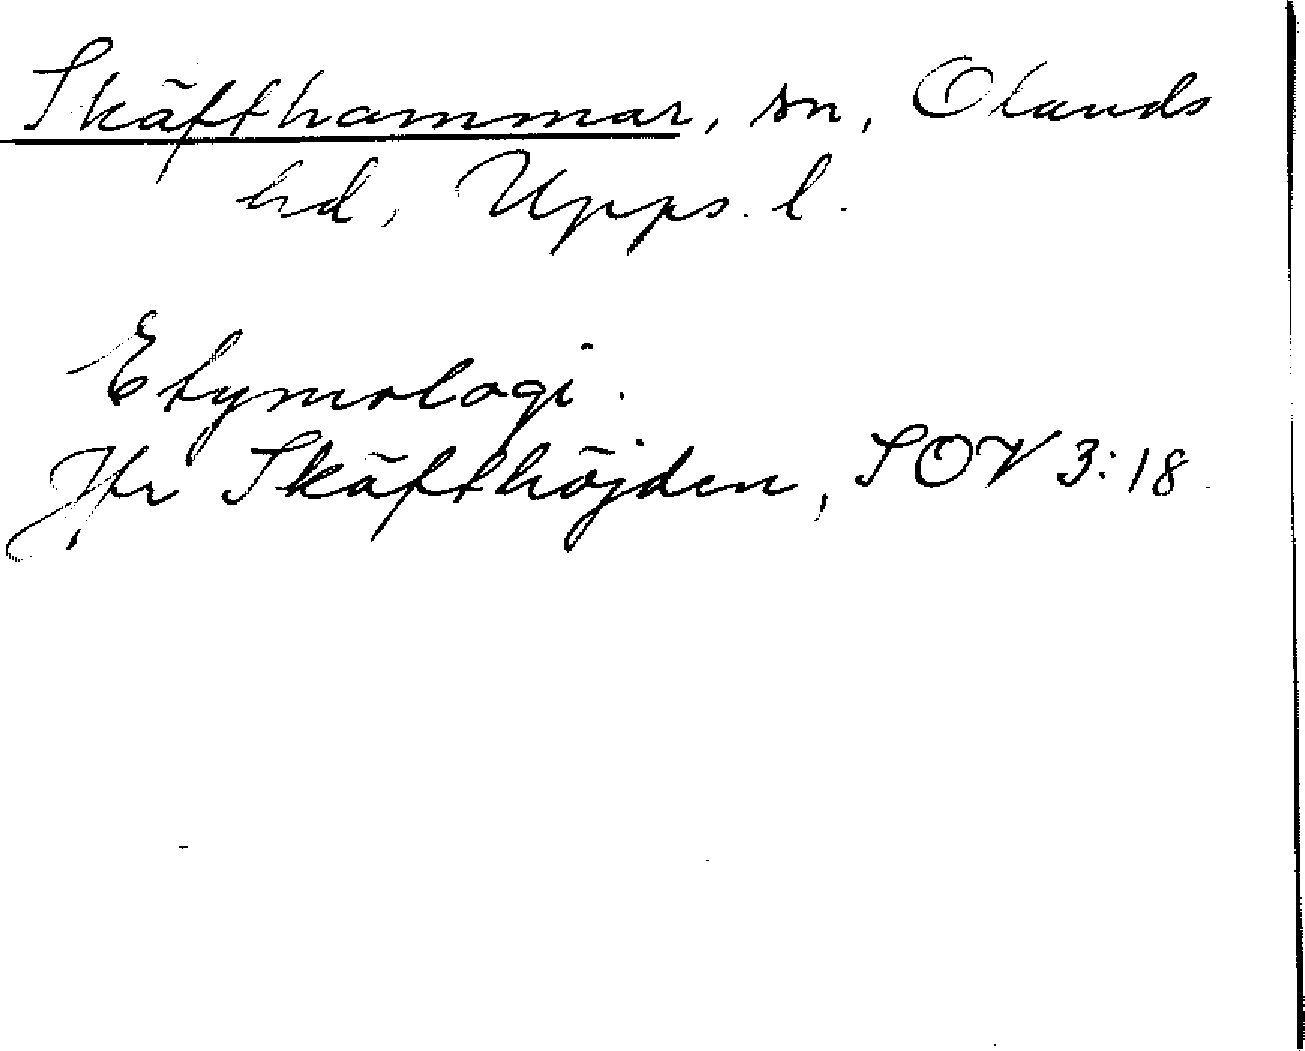 Skäfthammar, sn, Olands
hd, Upps. l.
Etymologi.
Jfr Skäfthöjden, SOV 3:18